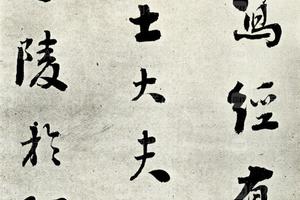 寫經有
士大夫
陵於